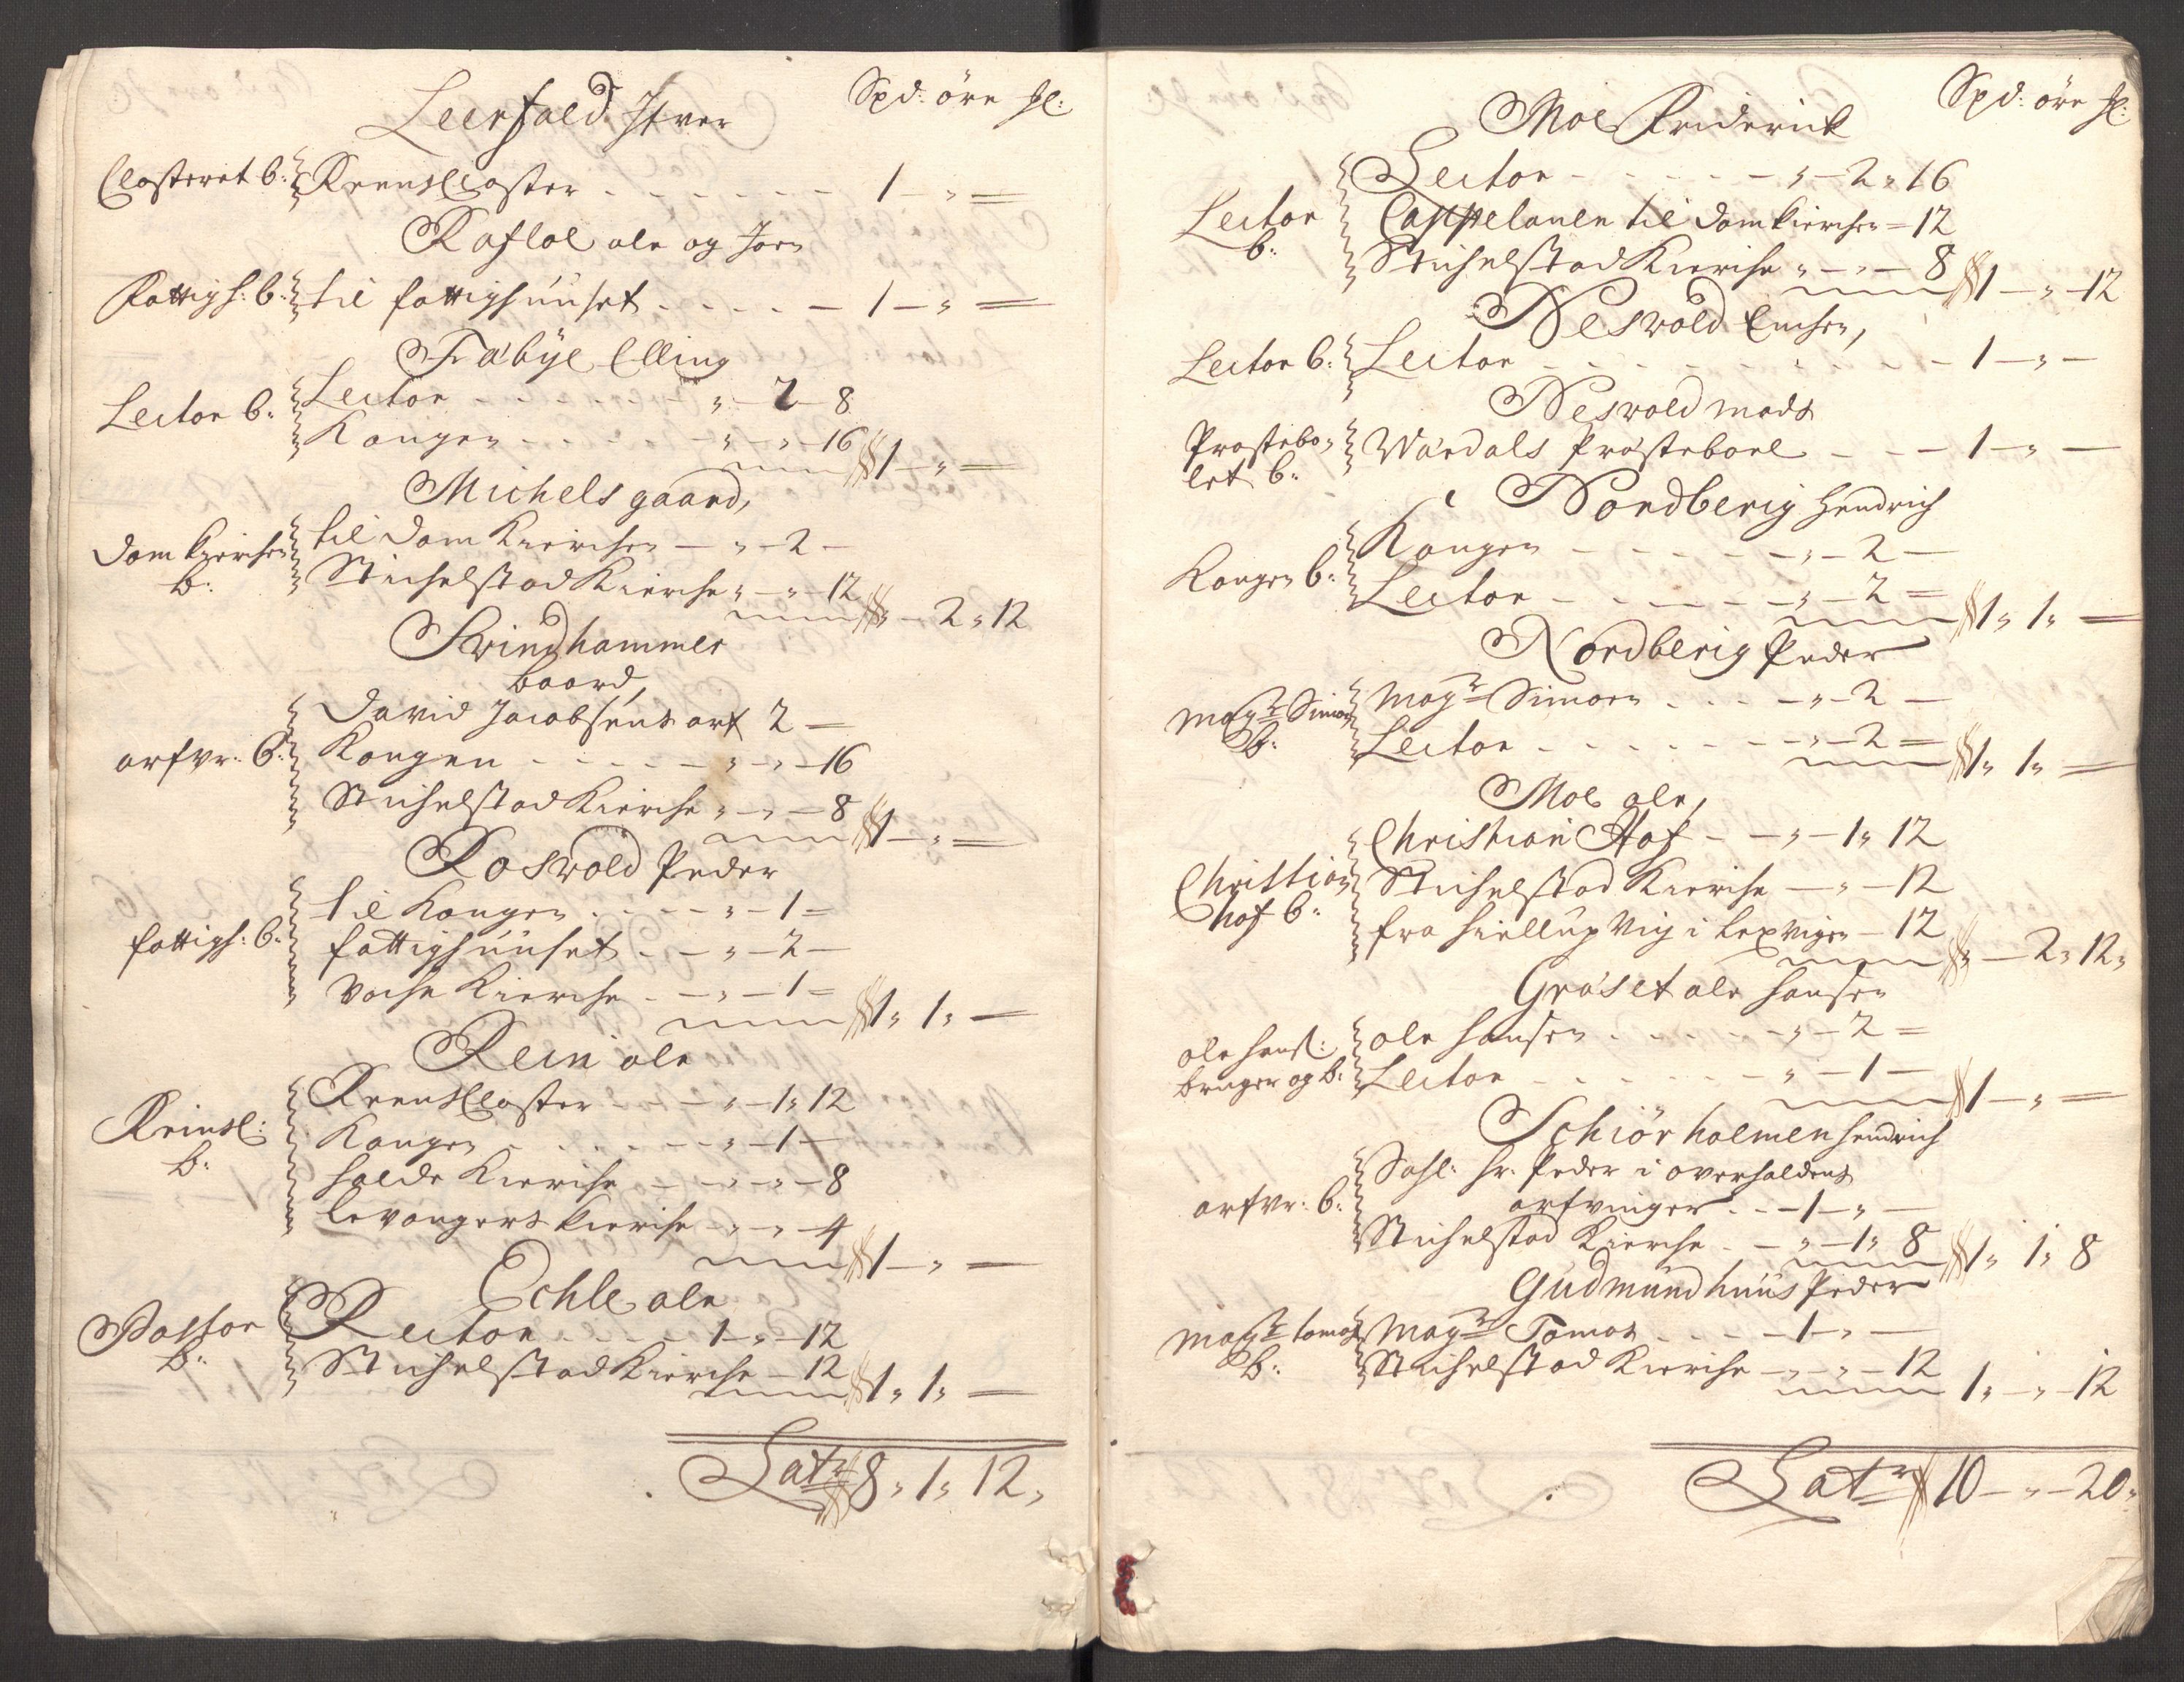 Spd: öre sl:
Leerfald Jfver
Closteret b: Reens Closter - - - - - - 1 - „ =
Kaflol ole og Joen
Fattigh: b: til fattighuuset - - - - 1 - „ =
Fåbÿe Elling
Lector b: Lector - - - - - „ - 2 - 8
Kongen - - - - „ - „ - 16
1 - „ =
Michels gaard,
Domkierchen b: til Dom Kierchen - „ - 2 -
Stichelstad Kierche „ - „ - 12
„ - 2 „ 12
Svindhammer
baard,
arfvr: b: David Jacobsens arf 2 =
Kongen - - - - - „ - „ - 16
Stichelstad Kierche „ - „ - 8
1 - „ =
Rosvold Peder
til Kongen - - - - „ - 1 =
fattigh: b: fattighuuset - - „ - 2 -
Vochu Kierche - - „ - 1 =
1 „ 1 „ =
Rein ole
Reinscl: b: Reens Closter - - - „ - 1 „ 12
Kongen - - - - - „ - 1 -
halde Kierche - - „ - „ - 8
Levangers Kierche - „ - „ - 4
1 - „ =
Echle ole
Pastor b: Rector - - - - 1 - „ - 12
Stichelstad Kierche - 12
1 „ 1 „ =
Latr 8 „ 1 „ 12 „
Spd: öre sl:
Moe Friderich
Lector b: Lector - - - - - - „ - 2 „ 16
Cappelanen til Domkierchen - 12
Stichelstad Kierche „ - „ - 8
1 - „ - 12
Nesvold Enchen,
Lector b: Lector - - - - - - - - 1 - „ -
Nesvold mads
Prostebo-
let b: Wärdals Prösteboel - - - 1 - „ -
Nordberig Hendrich
Kongen b: Kongen - - - - - - „ - 2 -
Lector - - - - - - „ - 2 =
1 „ 1 „ =
Nordberig Peder
Magr Simon b: Magr Simon - - - - „ - 2 -
Lector - - - - - - - „ - 2 =
1 „ 1 „ =
Moe ole,
Christian
hof b: Christian Hof - - „ - 1 „ 12
Stichelstad Kierche - „ - 12
fra Hiellup Vig i Lexvigen - 12
„ - 2 „ 12 „
Gräset ole hansen
ole hans:
bruger og b: ole hansen - - - - - „ - 2 =
Lector - - - - - - - „ - 1 -
1 - „ =
Schiör holmen hendrich
arfvr: b: Sahl: hr: Peder i overhaldens
arfvinger - - 1 - „ -
Stichelstad Kierche - - „ - 1 „ 8
1 „ 1 „ 8
Gudmundhuus Peder
Magr tomas b: Magr Tomas - - - - 1 - „ -
Stichelstad Kierche - „ - „ - 12
1 „ - „ - 12
Latr 10 - „ - 20 „